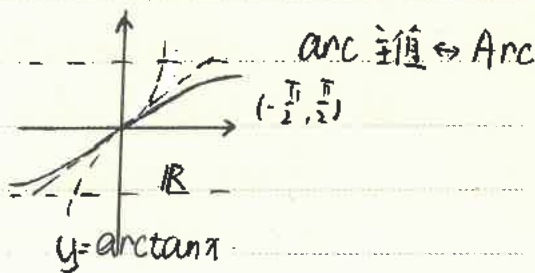 arc 主值 ⇔ Arc
(-π/2, π/2)
ℝ
y=arctanx